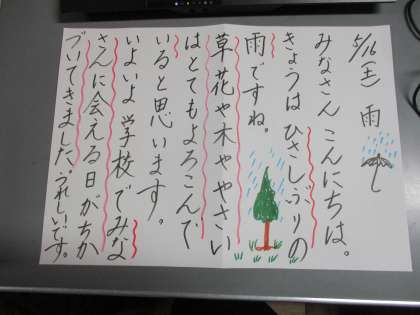 5/16(土) 雨
みなさん こんにちは。
きょうは ひさしぶりの
雨ですね。
草花や木や やさい
はとてもよろこんで
いると思います。
いよいよ学校でみな
さんに会える日がちか
づいてきました。うれしいです。